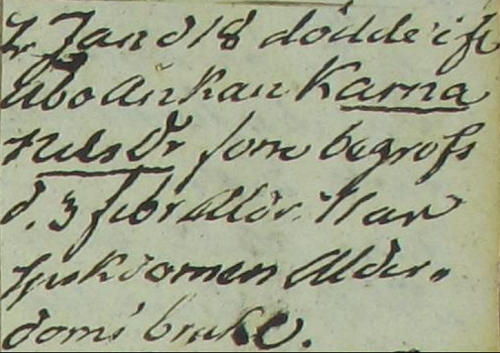 Jan d 18 dödde
åbo änkan Karna
Nils Dr som begrofs
d. 3 febr ålder. Var
siukdomen Ålder-
doms bräke.